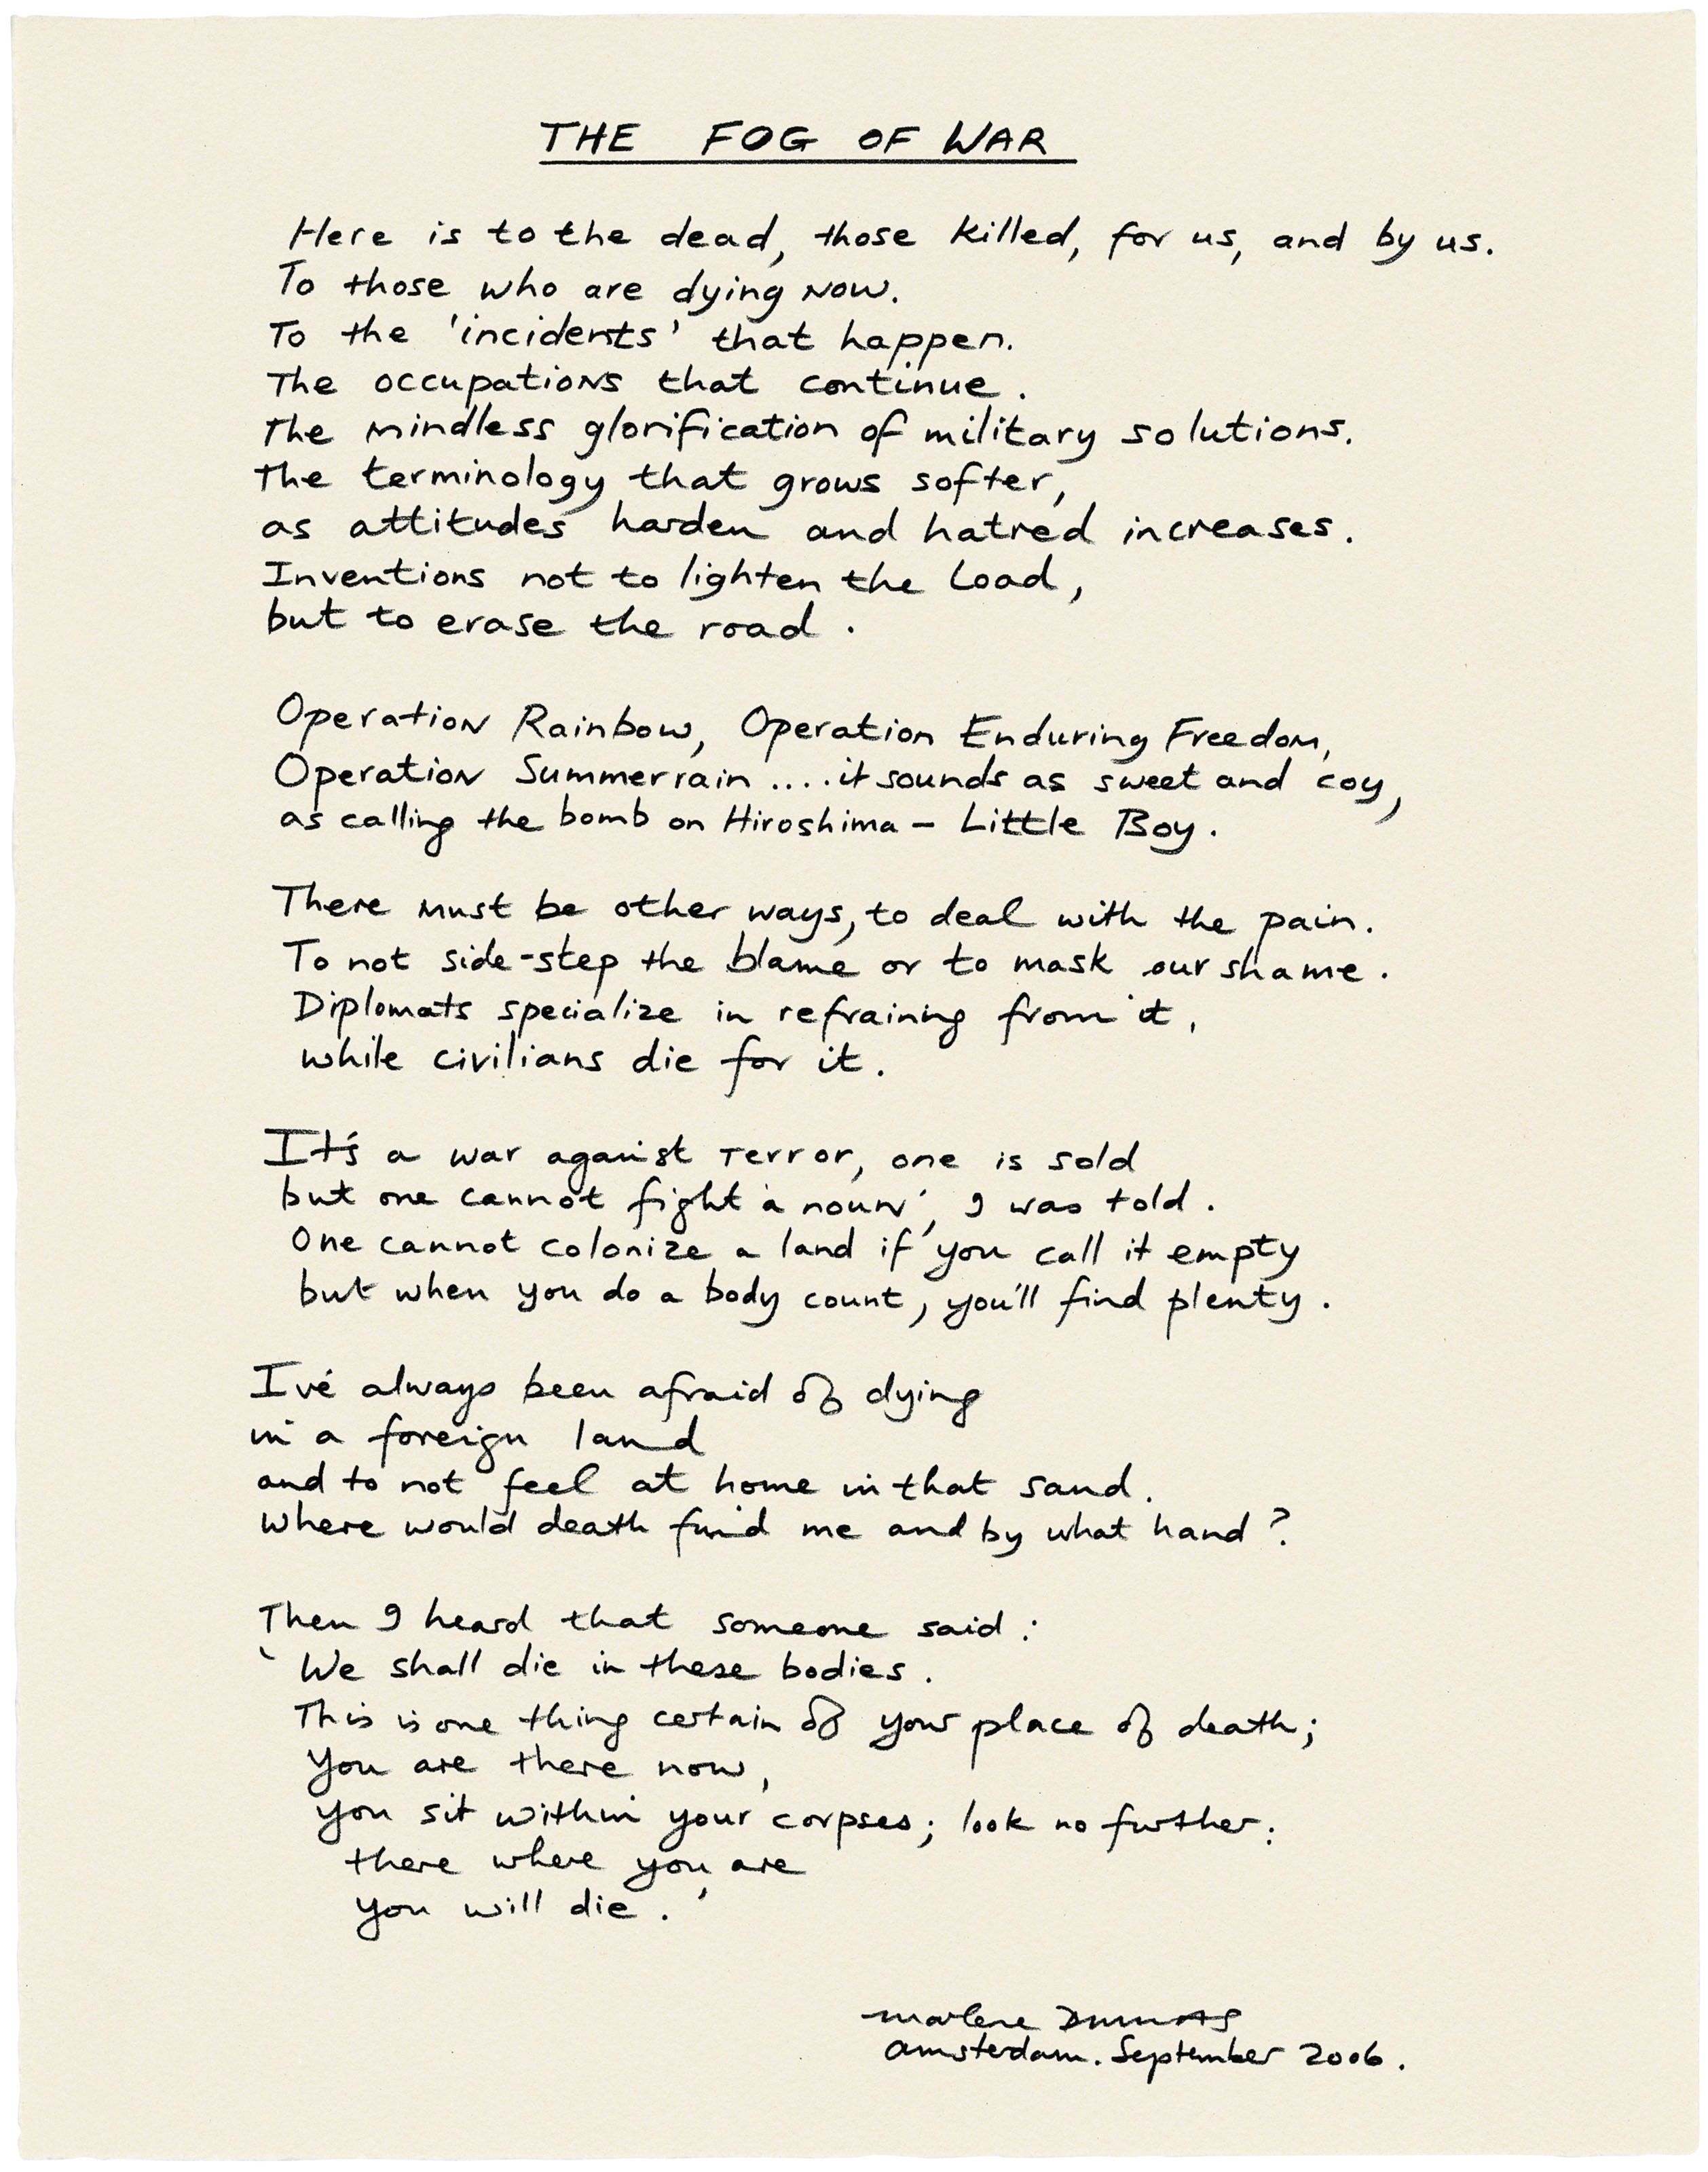 THE FOG OF WAR
Here is to the dead, those killed, for us, and by us.
To those who are dying now.
To the 'incidents' that happen.
The occupations that continue.
The mindless glorification of military solutions.
The terminology that grows softer,
as attitudes harden and hatred increases.
Inventions not to lighten the load,
but to erase the road.
Operation Rainbow, Operation Enduring Freedom,
Operation Summerrain .... it sounds as sweet and coy,
as calling the bomb on Hiroshima – Little Boy.
There must be other ways, to deal with the pain.
To not side-step the blame or to mask our shame.
Diplomats specialize in refraining from it,
while civilians die for it.
It's a war against Terror, one is sold
but one cannot fight 'a noun', I was told.
One cannot colonize a land if you call it empty
but when you do a body count, you'll find plenty.
I've always been afraid of dying
in a foreign land
and to not feel at home in that sand.
Where would death find me and by what hand?
Then I heard that someone said:
'We shall die in these bodies.
This is one thing certain of your place of death;
You are there now,
you sit within your corpses; look no further:
there where you are
you will die.'
Marlene Dumas
Amsterdam. September 2006.